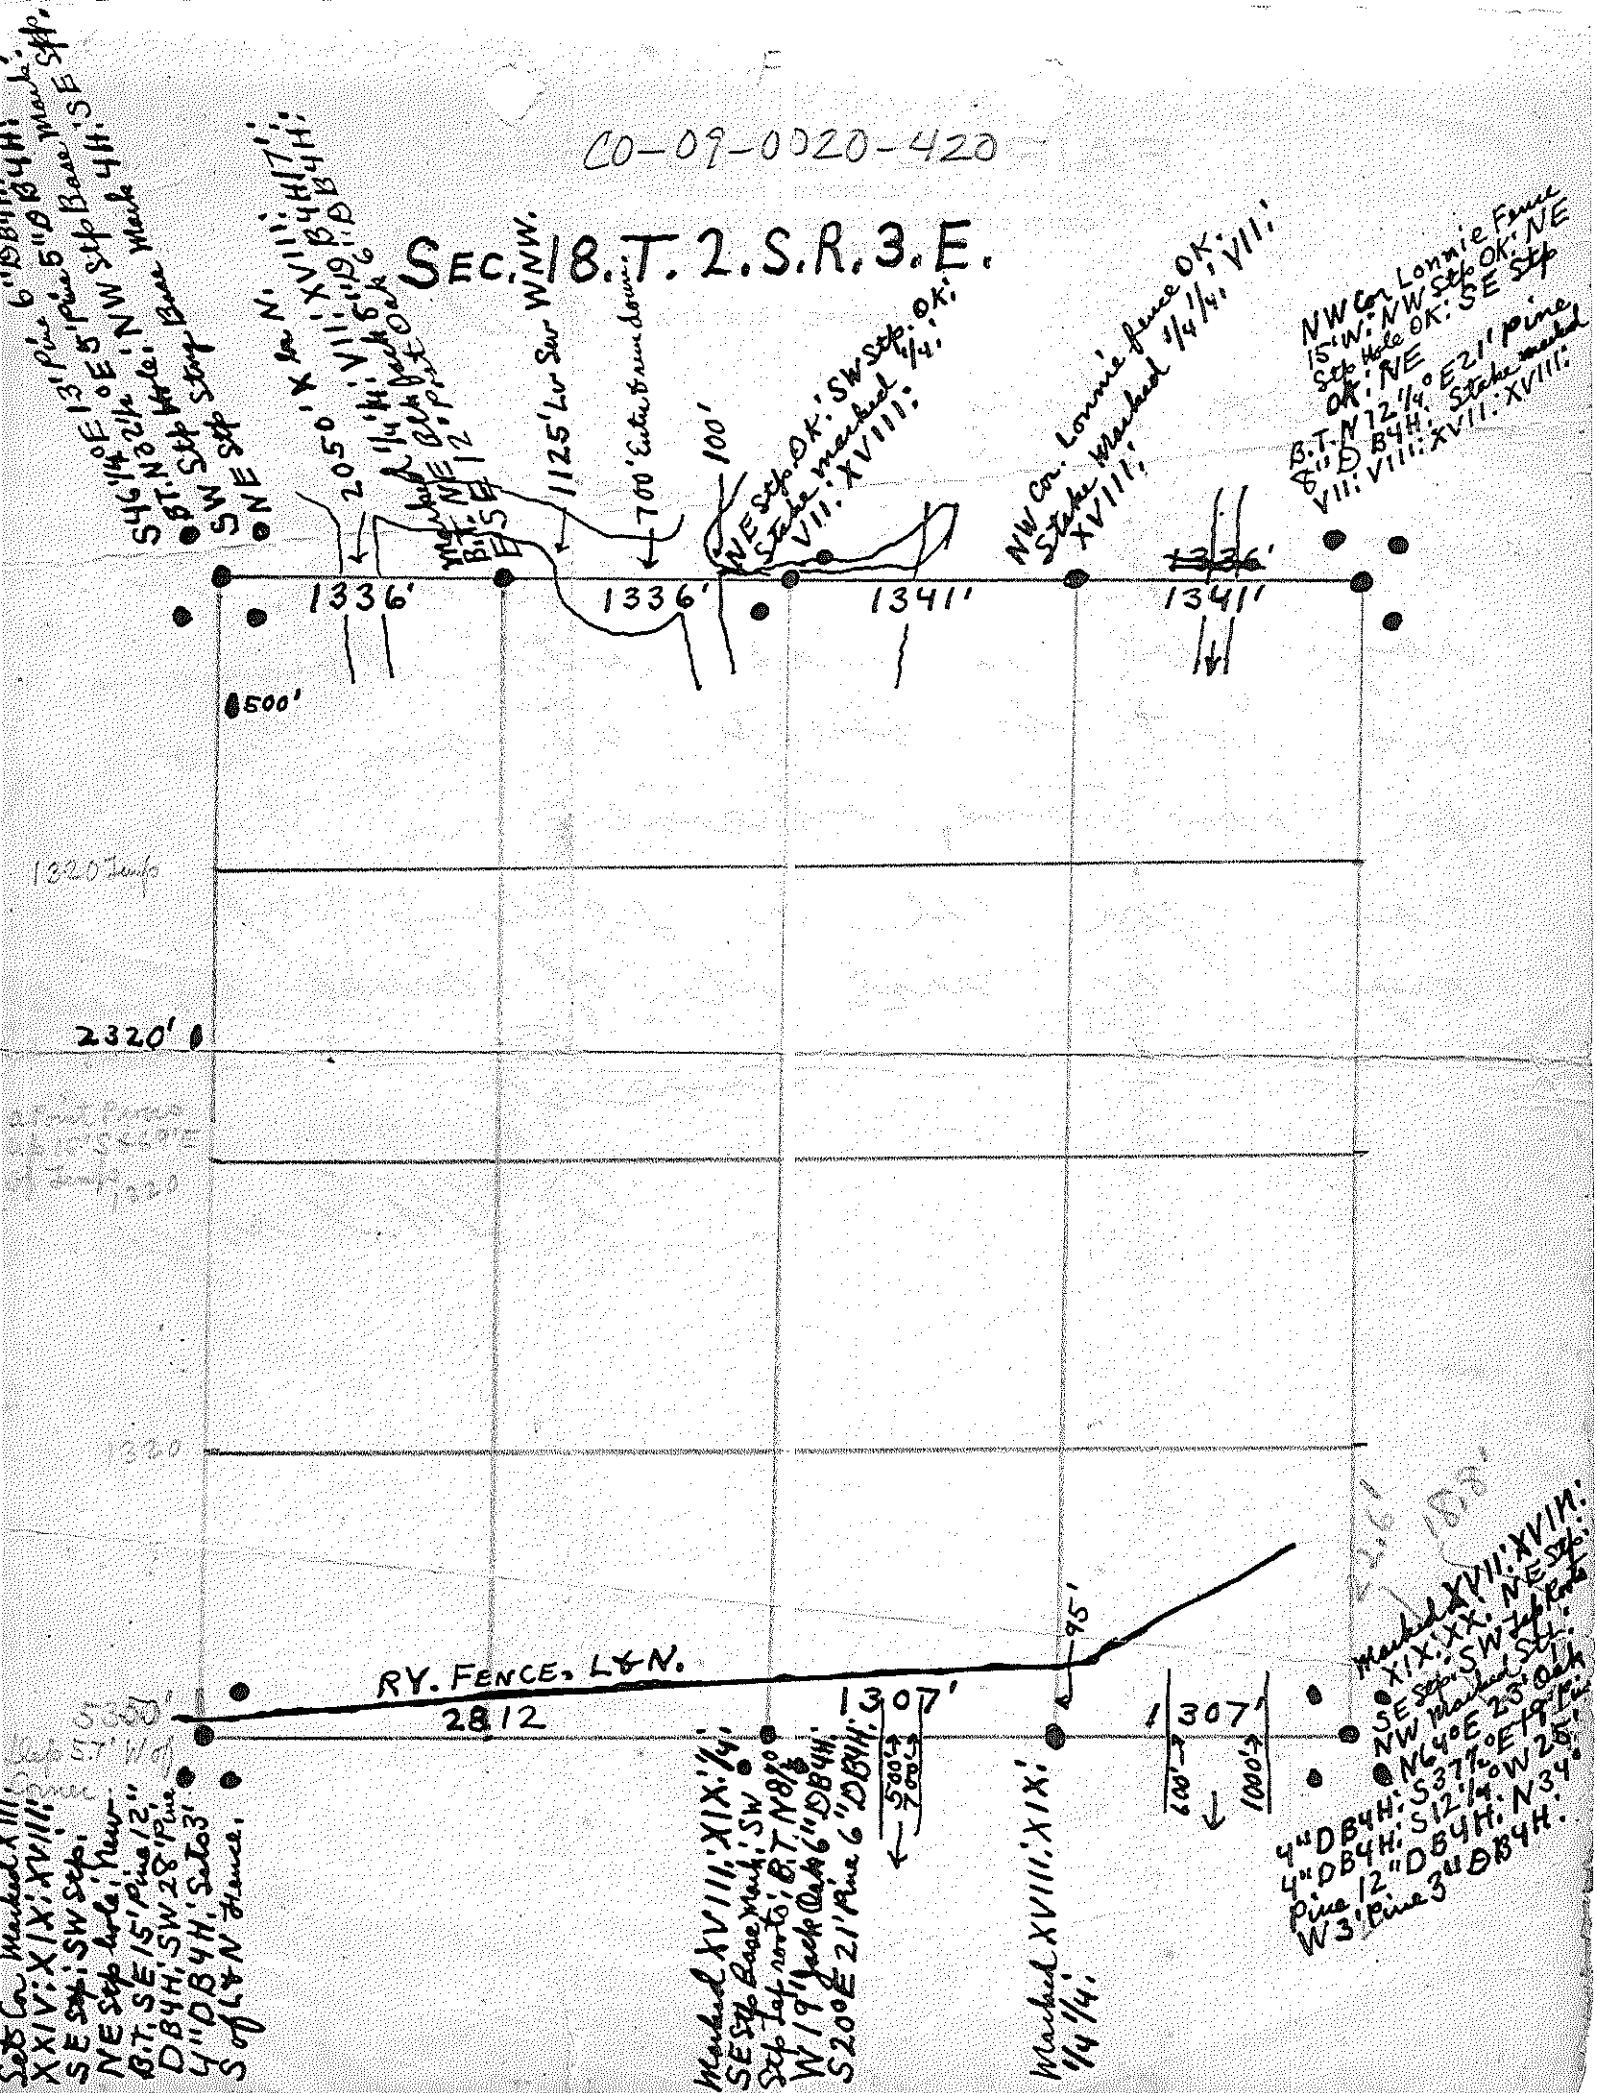 CO-09-0020-420
SEC. 18. T. 2. S. R. 3. E.
6" DB4H:
5" DB4H: Mark:
S46 1/4°E 13' Pine Stp.
°E 5' Pine Stp Base Mark SE
BT. N32 1/2 NW Stp 4H:
Stp Hole: Base Mark
SW Stp Strg
NE Stp
X La N.
2050' VII: XVIII: 17':
Marked 1/4 1/4: 5" DB4H:
B.T. NE Blk Jack Oak 6
ESE 12' Post
1125' Lv Sw WNW.
700' Enter down.
100'
NE Stp. OK: SW Stp. OK:
Stake marked 1/4:
VII: XVIII:
NW Cor. Lonnie fence OK:
Stake Marked 1/4 1/4: VII:
XVIII:
NW Cor Lonnie Fence
15' W: NW Stp OK: NE
Stp Hole OK: SE Stp
OK: NE
B.T. N72 1/4°E 21' Pine
8" D B4H: Stake marked
VII: VIII: XVII: XVIII:
1336'
1336'
1336'
1341'
1341'
500'
1320 Temp
2320'
of Temp
1320
1320
2.61
18.8'
RY. FENCE. L&N.
95'
5350'
2812
1307'
1307'
500'
700'
600'
1000'
Step 57' W of
Sets Cor Marked XIII:
XXIV: XIX: XVIII:
SE Stp: SW Stp.
NE Stp hole: New
B.T. SE 15' Pine 12"
DB4H: SW 28' Pine
4" DB4H: Sets 3'
S of L&N Fence.
Marked XVIII: XIX: 1/4:
SE Stp Base Mark: SW
Stp Tap roots: B.T N8 1/2°
W 19' Jack Oak 6" DB4H:
S20°E 21' Pine 6" DB4H:
Marked XVIII: XIX:
1/4 1/4:
Marked XVII: XVIII:
XIX: XX: NE Stp:
SE Stp: SW Tap Roots
NW Marked Stp:
N64°E 23' Oak
4" DB4H: S37 1/2°E 19' Pine
4" DB4H: S12 1/4°W 25'
Pine 12" DB4H: N34°
W 3' Pine 3" DB4H: